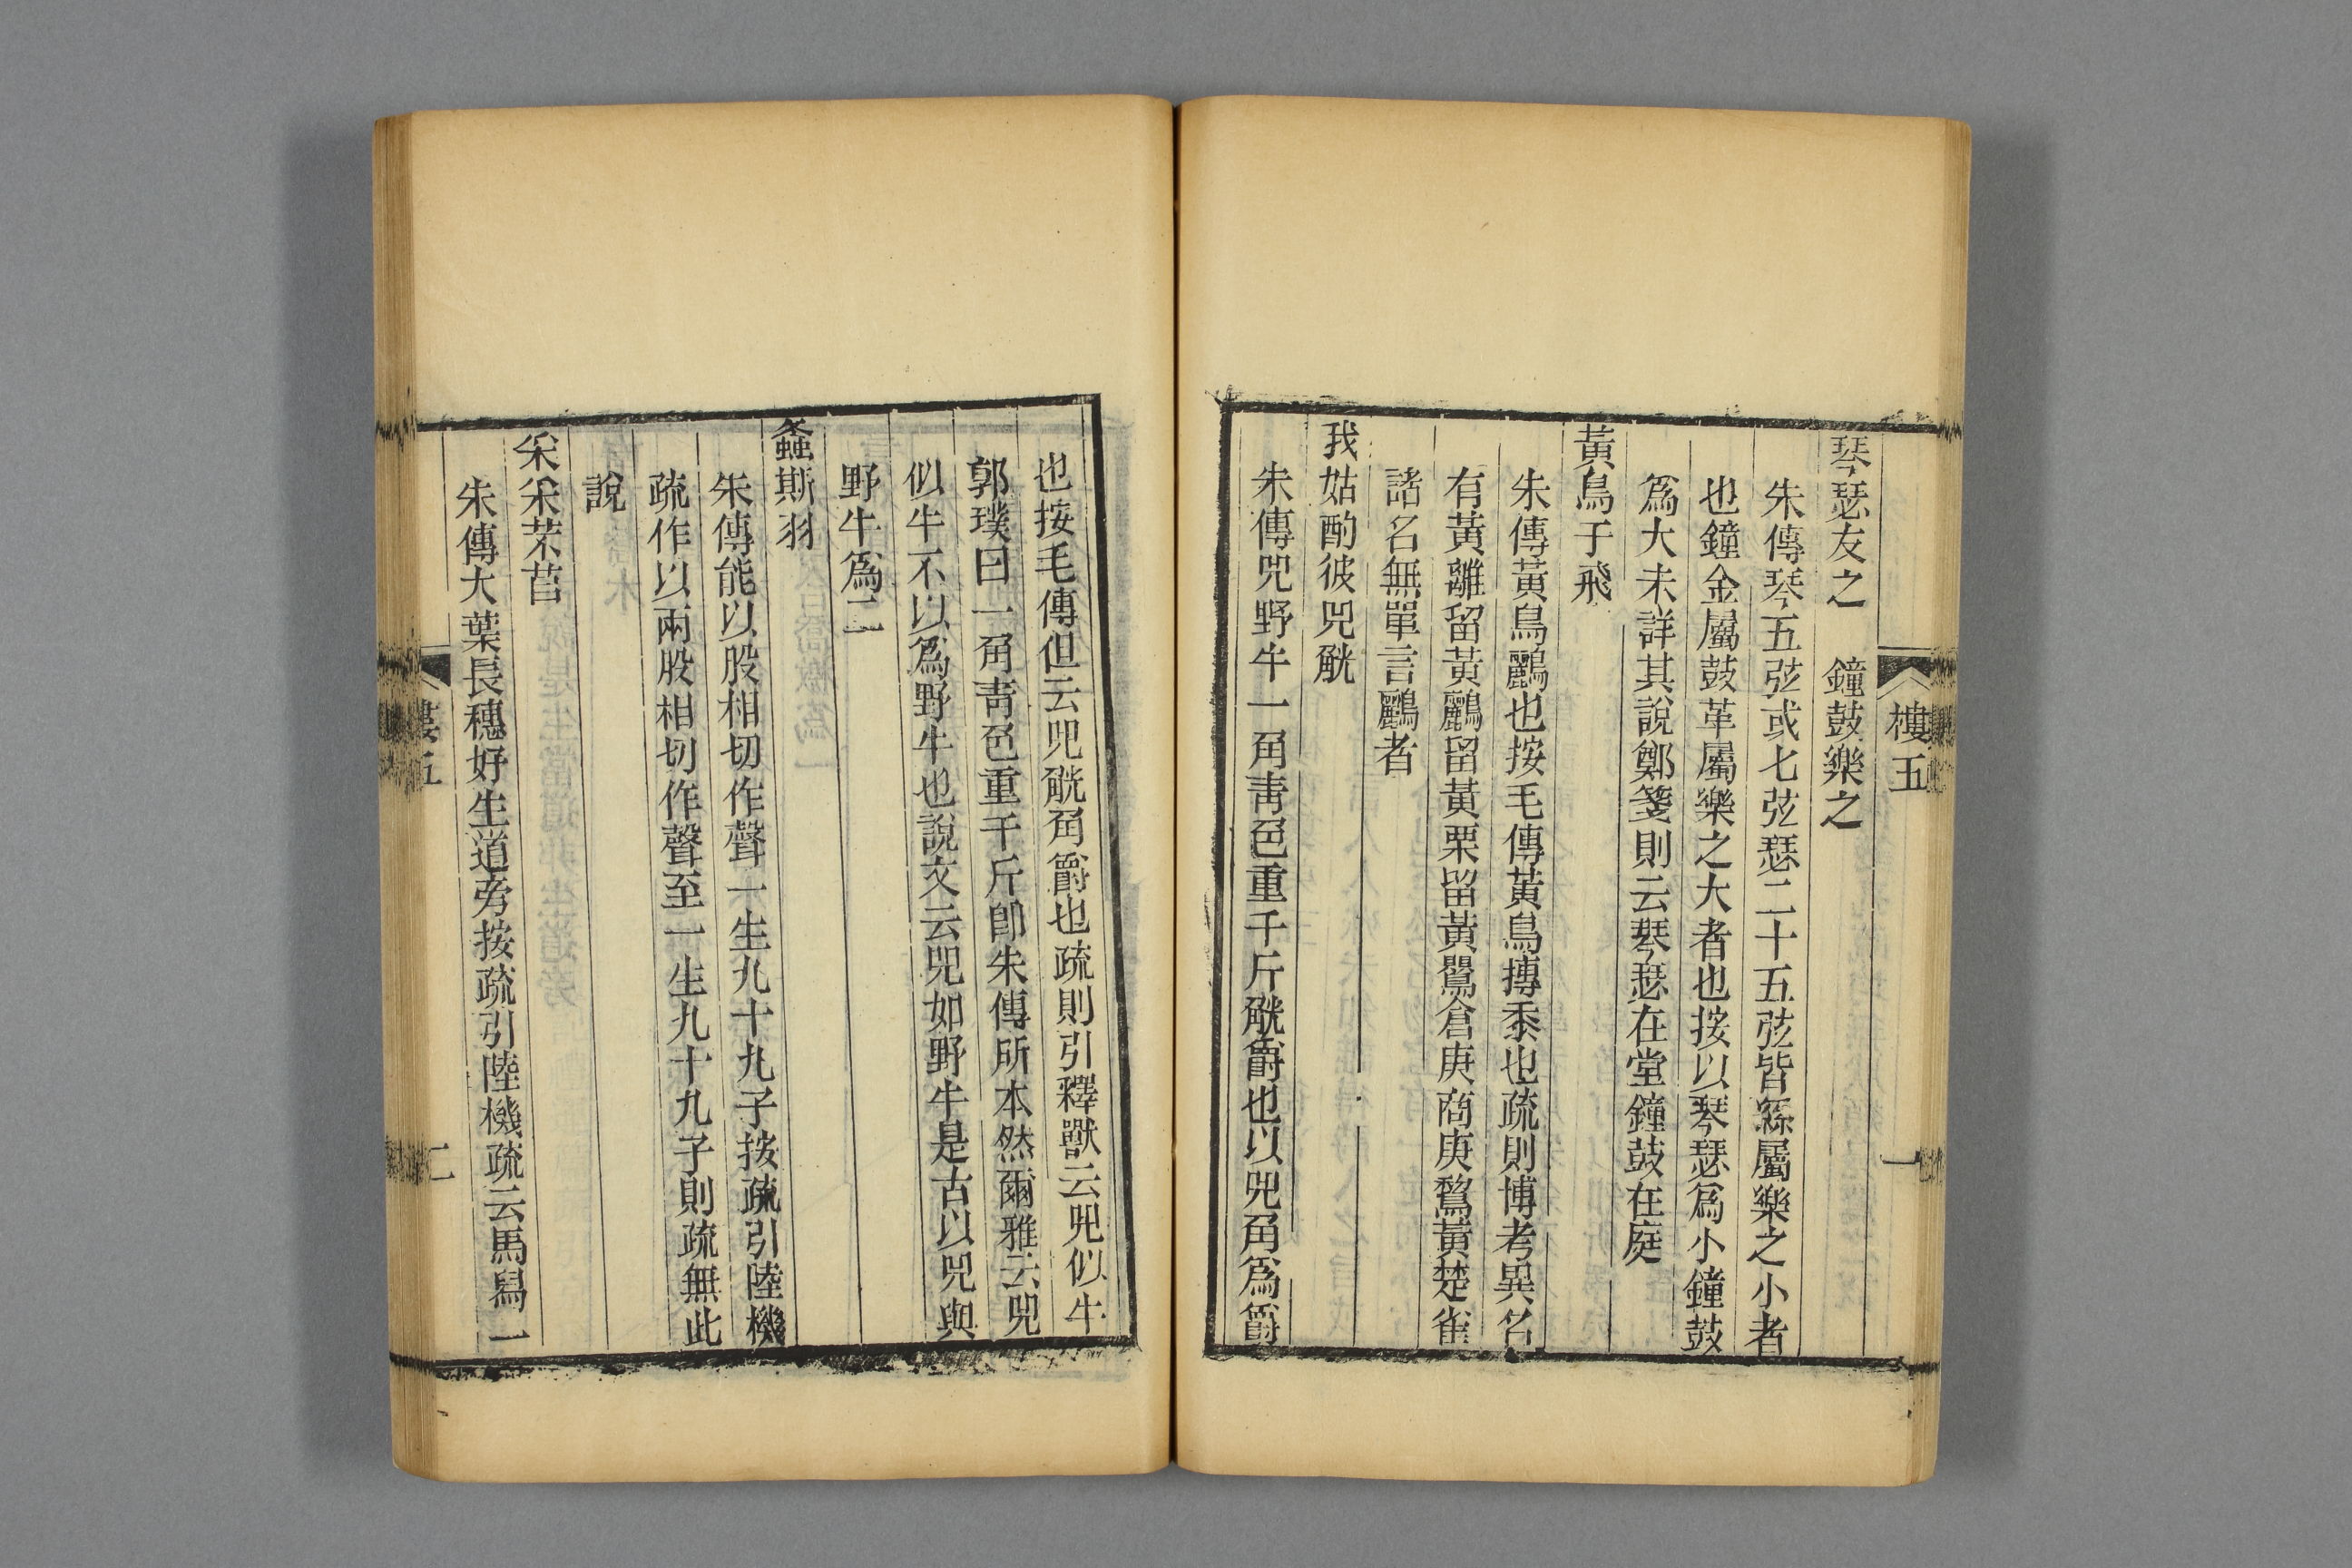 樓五
一
琴瑟友之　鐘鼓樂之
朱傳琴五弦或七弦瑟二十五弦皆絲屬樂之小者
也鐘金屬鼓革屬樂之大者也按以琴瑟爲小鐘鼓
爲大未詳其說鄭箋則云琴瑟在堂鐘鼓在庭
黃鳥于飛
朱傳黃鳥鸝也按毛傳黃鳥摶黍也疏則博考異名
有黃離留黃鸝留黃栗留黃鸎倉庚商庚鵹黃楚雀
諸名無單言鸝者
我姑酌彼兕觥
朱傳兕野牛一角青色重千斤觥爵也以兕角爲爵
也按毛傳但云兕觥角爵也疏則引釋獸云兕似牛
郭璞曰一角青色重千斤卽朱傳所本然爾雅云兕
似牛不以爲野牛也說文云兕如野牛是古以兕與
野牛爲二
螽斯羽
朱傳能以股相切作聲一生九十九子按疏引陸機
疏作以兩股相切作聲至一生九十九子則疏無此
說
采采芣苢
朱傳大葉長穗好生道旁按疏引陸機疏云馬舄一
樓五
二